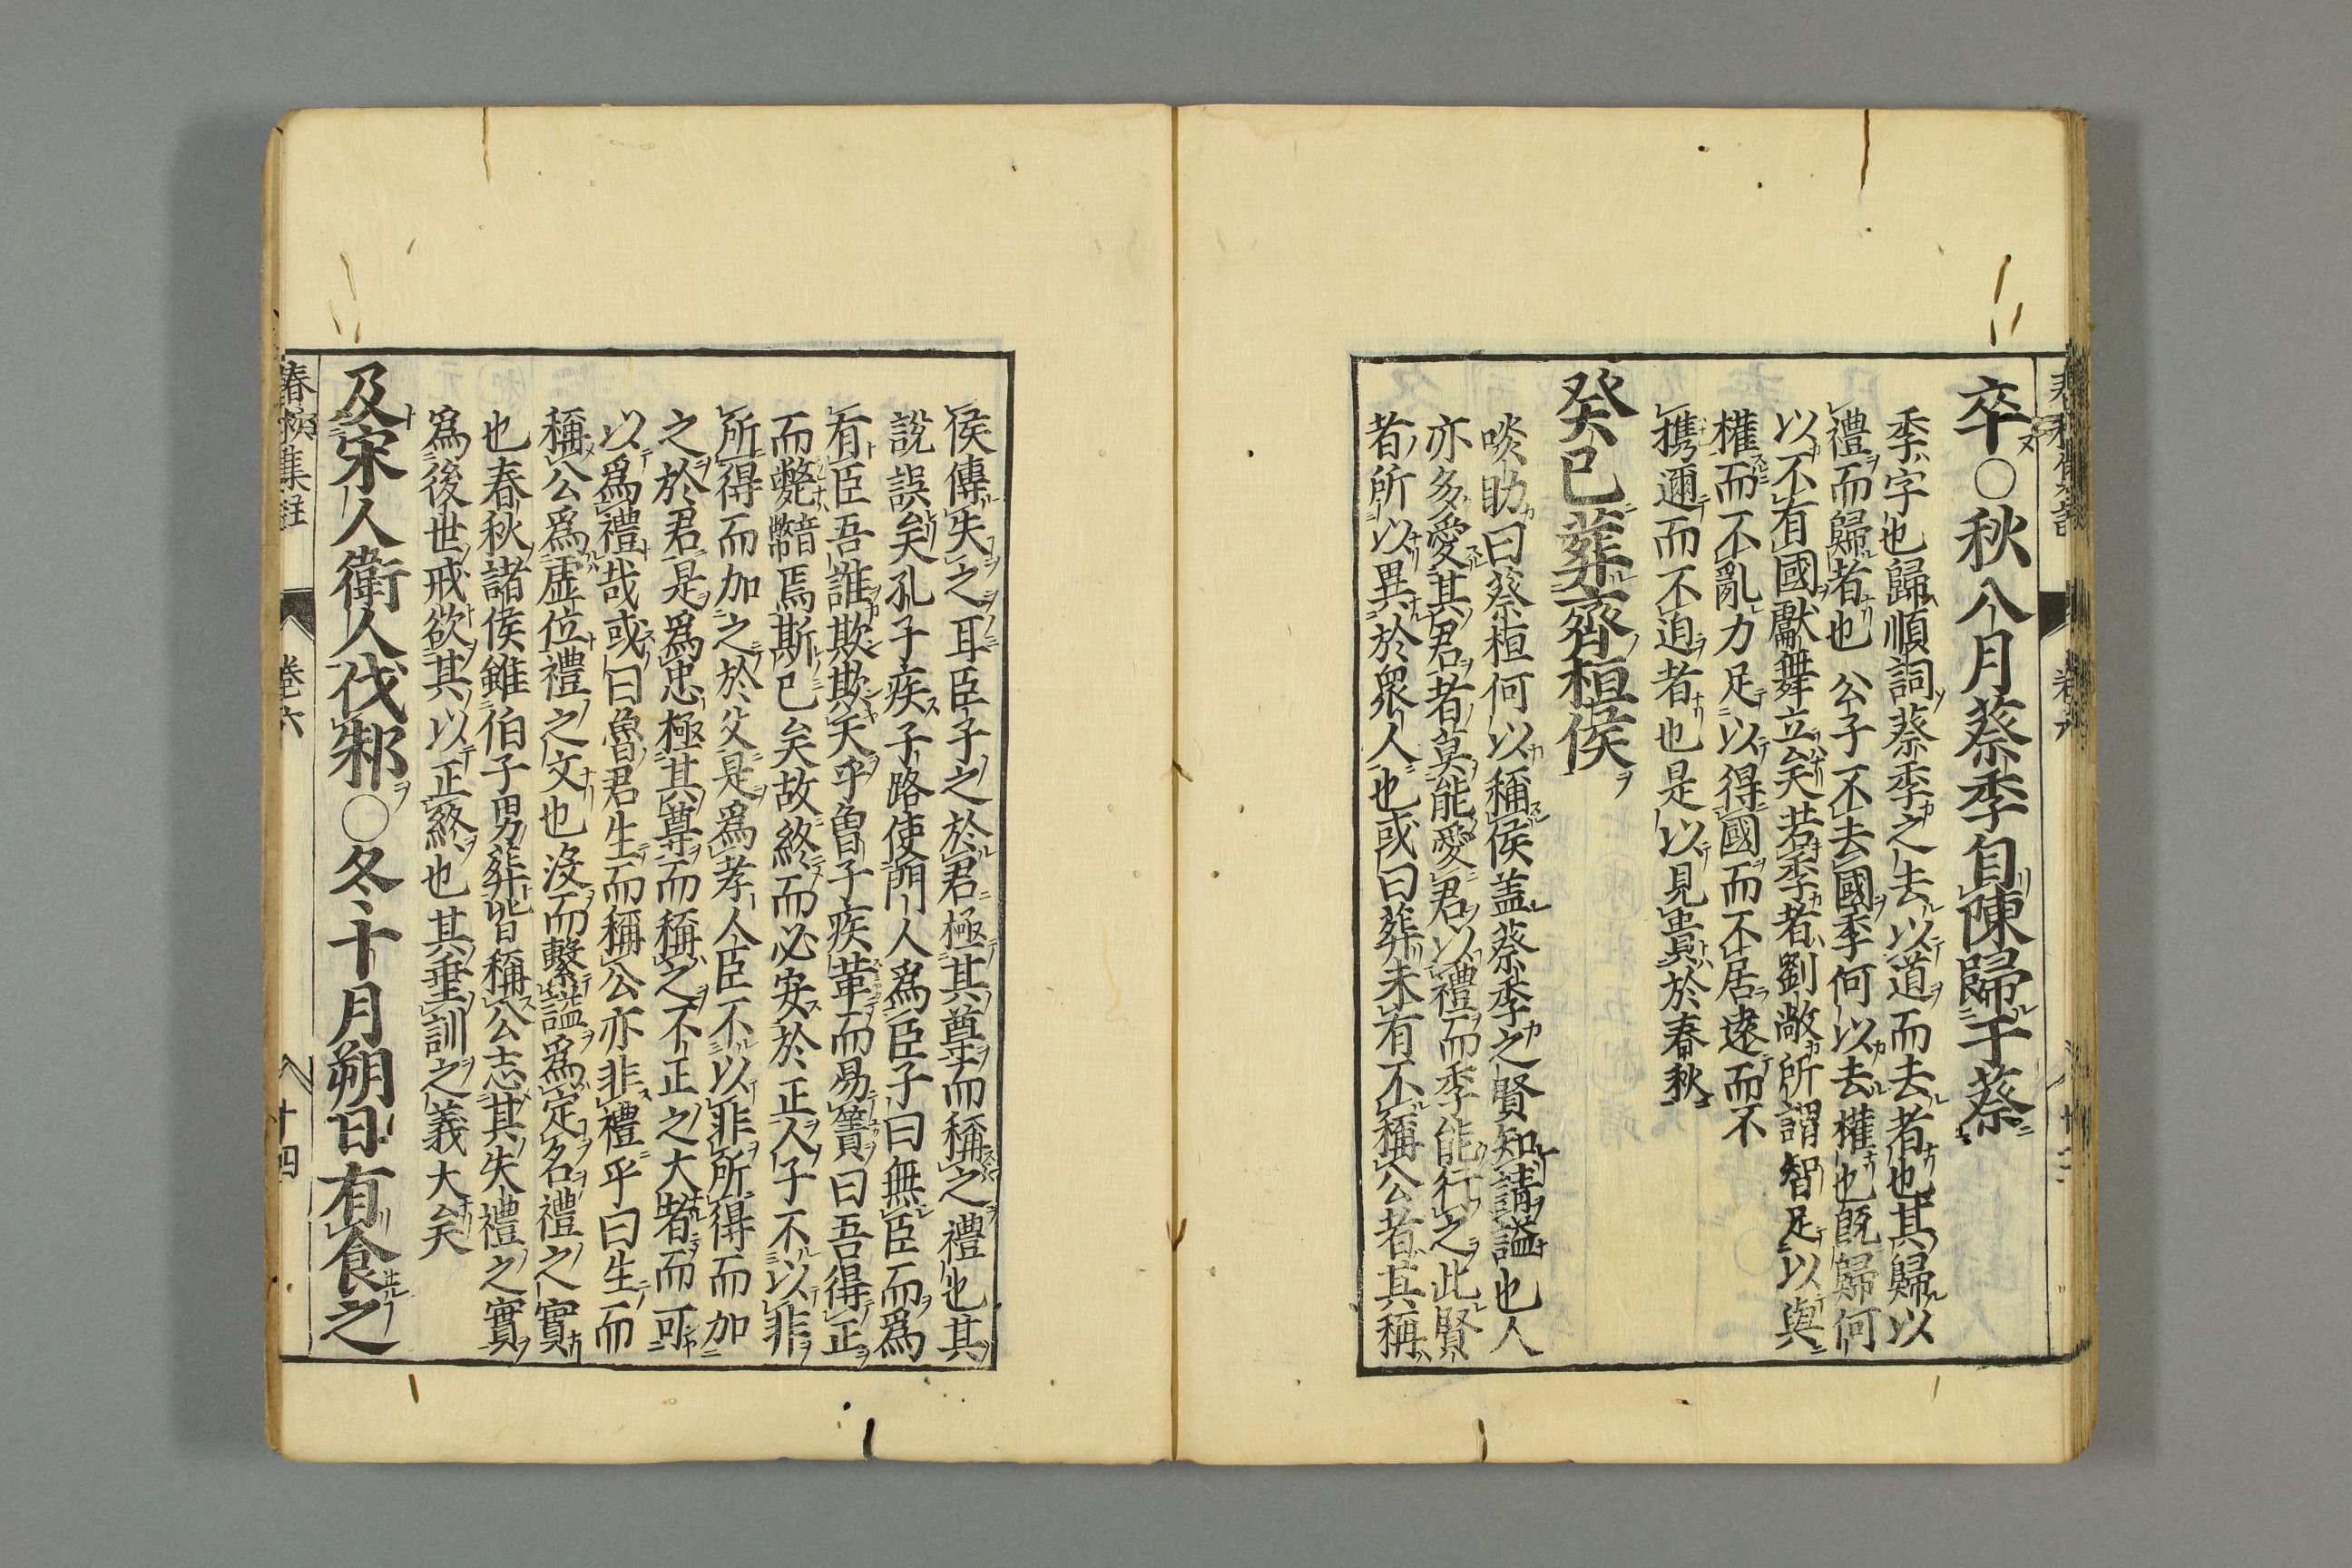 卒○秋八月蔡季自陳歸于蔡
季字也歸順詞蔡季之去以道而去者也其歸以
禮而歸者也公子不去國季何以去權也既歸何
以不有國獻舞立矣若季者劉敞所謂智足以與
權而不亂力足以得國而不居遠而不
携邇而不迫者也是以見貴於春秋
癸巳葬齊桓侯
啖助曰蔡桓何以稱侯盖蔡季之賢知請謚也人
亦多愛其君者莫能愛君以禮而季能行之此賢
者所以異於衆人也或曰葬未有不稱公者其稱
侯傳失之耳臣子之於君極其尊而稱之禮也其
說誤矣孔子疾子路使門人爲臣子曰無臣而爲
有臣吾誰欺欺天乎曾子疾革而易簀曰吾得正
而斃焉斯已矣故終而必安於正人子不以非
所得而加之於父是爲孝人臣不以非所得而加
之於君是爲忠極其尊而稱之不正之大者而可
以爲禮哉或曰魯君生而稱公亦非禮乎曰生而
稱公爲虛位禮之文也沒而繫謚爲定名禮之實
也春秋諸侯雖伯子男葬皆稱公志其失禮之實
爲後世戒欲其以正終也其垂訓之義大矣
及宋人衛人伐邾○冬十月朔日有食之
春秋集註 卷六 十四